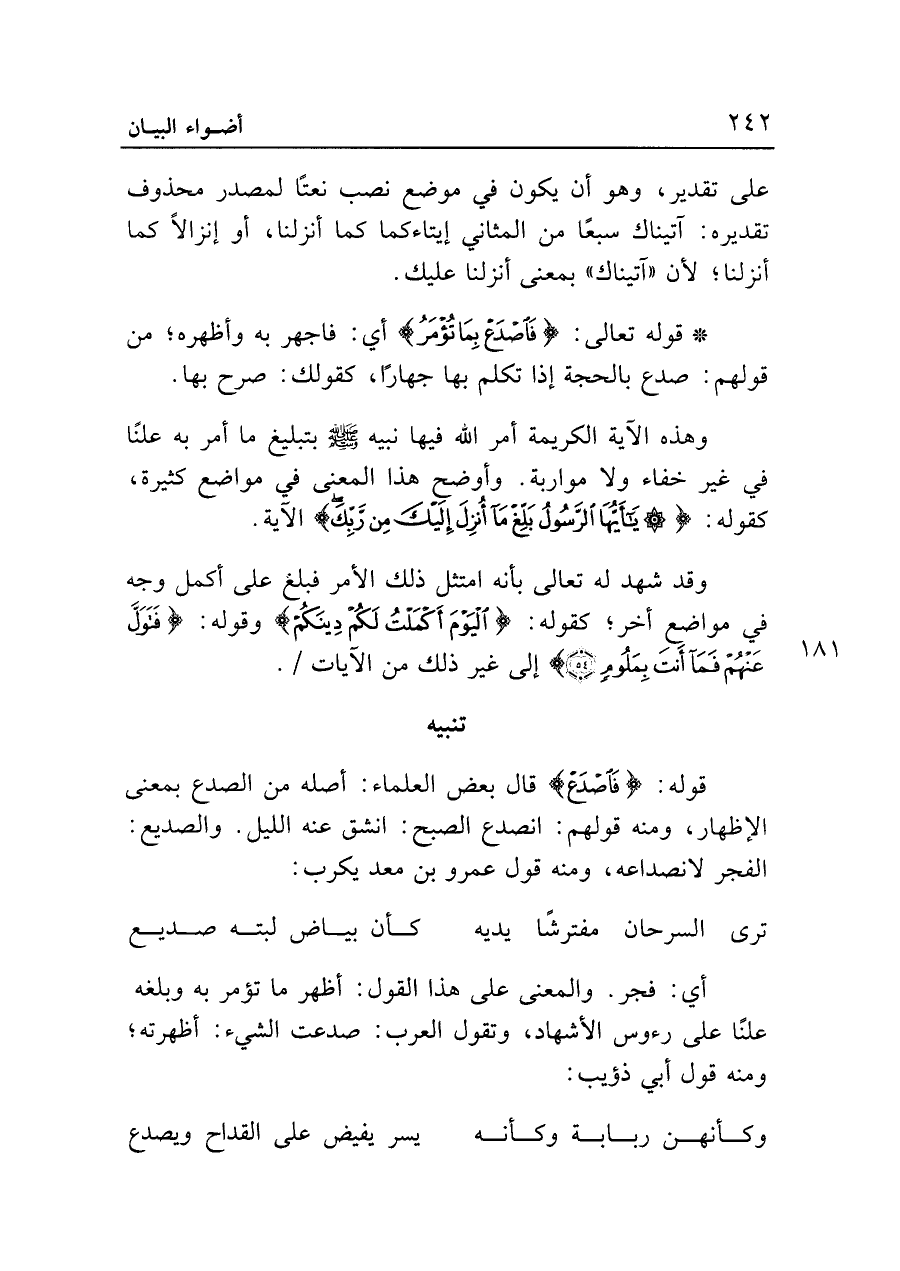 ٢٤٢ أضواء البيان
على تقدير، وهو أن يكون في موضع نصب نعتًا لمصدر محذوف
تقديره: آتيناك سبعًا من المثاني إيتاءكما كما أنزلنا، أو إنزالاً كما
أنزلنا؛ لأن «آتيناك» بمعنى أنزلنا عليك.
* قوله تعالى: ﴿فَٱصۡدَعۡ بِمَا تُؤۡمَرُ﴾ أي: فاجهر به وأظهره؛ من
قولهم: صدع بالحجة إذا تكلم بها جهارًا، كقولك: صرح بها.
وهذه الآية الكريمة أمر الله فيها نبيه ﷺ بتبليغ ما أمر به علنًا
في غير خفاء ولا مواربة. وأوضح هذا المعنى في مواضع كثيرة،
كقوله: ﴿۞ يَـٰٓأَيُّهَا ٱلرَّسُولُ بَلِّغۡ مَآ أُنزِلَ إِلَيۡكَ مِن رَّبِّكَۖ﴾ الآية.
وقد شهد له تعالى بأنه امتثل ذلك الأمر فبلغ على أكمل وجه
في مواضع أخر؛ كقوله: ﴿ٱلۡيَوۡمَ أَكۡمَلۡتُ لَكُمۡ دِينَكُمۡ﴾ وقوله: ﴿فَتَوَلَّ
١٨١
عَنۡهُمۡ فَمَآ أَنتَ بِمَلُومٖ ٥٤﴾ إلى غير ذلك من الآيات / .
تنبيه
قوله: ﴿فَٱصۡدَعۡ﴾ قال بعض العلماء: أصله من الصدع بمعنى
الإظهار، ومنه قولهم: انصدع الصبح: انشق عنه الليل. والصديع:
الفجر لانصداعه، ومنه قول عمرو بن معد يكرب:
ترى السرحان مفترشًا يديه كأن بياض لبته صديع
أي: فجر. والمعنى على هذا القول: أظهر ما تؤمر به وبلغه
علنًا على رءوس الأشهاد، وتقول العرب: صدعت الشيء: أظهرته؛
ومنه قول أبي ذؤيب:
وكأنهن ربابة وكأنه يسر يفيض على القداح ويصدع